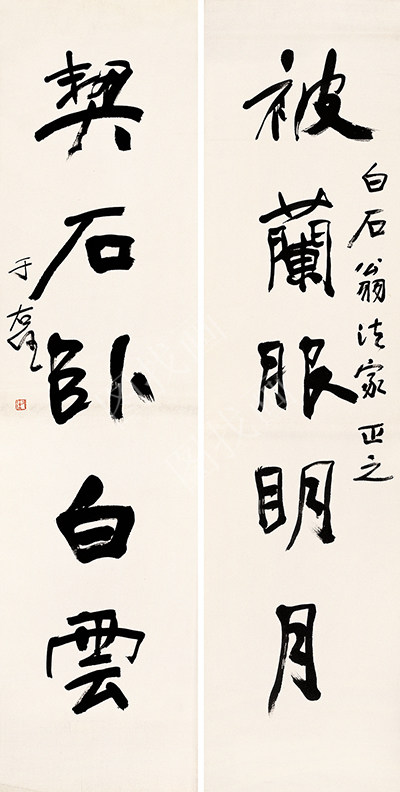 白石翁法家正之
被蘭服明月
契石臥白雲
于右任